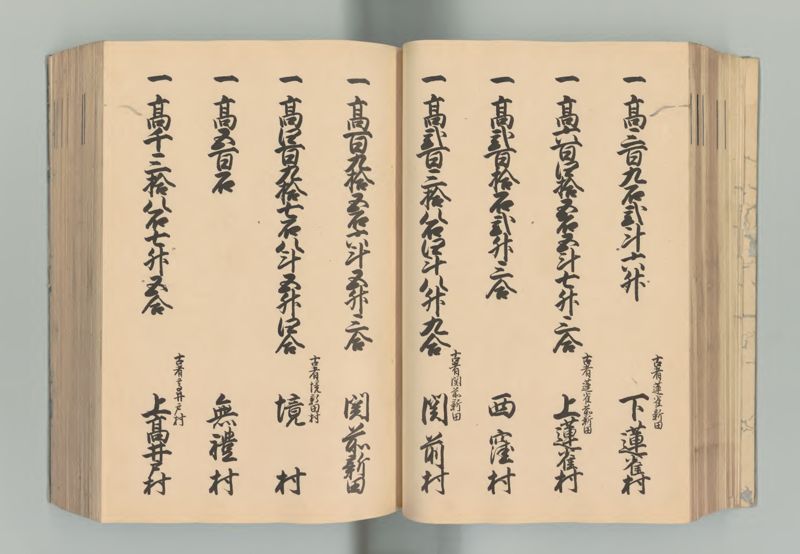 一高三百九石弐斗六升
古者蓮雀新田
下蓮雀村
一高六百四拾五石五斗七升三合
古者蓮雀前新田
上蓮雀村
一高弐百拾石弐升三合
西窪村
一高弐百三拾八石四斗八升九合
古者関前新田
関前村
一高百九拾五石六斗五升三合
関前新田
一高四百九拾七石八斗五升四合
古者境新田村
境村
一高五百石
無禮村
一高千三拾八石七升五合
古者井戸村
上高井戸村